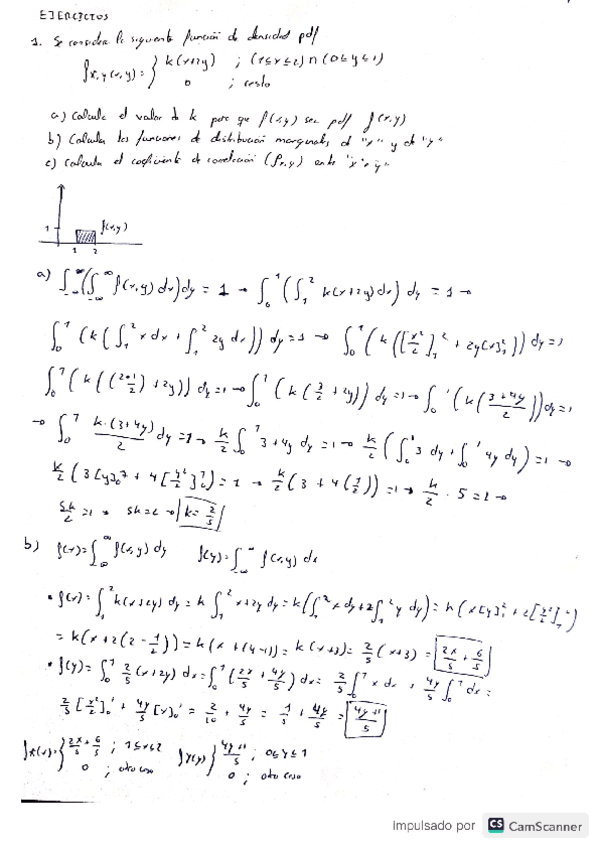 EJERCICIOS
1. Se considera la siguiente función de densidad pdf
f x,y (x,y) = { k(x+2y) ; (1≤x≤2) ∩ (0≤y≤1)
0 ; resto
a) Calcule el valor de k para que f(x,y) sea pdf f(x,y)
b) Calcula las funciones de distribución marginales de "x" y de "y"
c) Calcula el coeficiente de correlación (ρx,y) entre "x" e "y"
1 f(x,y)
1 2
a) ∫_-∞^∞ (∫_-∞^∞ f(x,y) dx) dy = 1 → ∫_0^1 (∫_1^2 k(x+2y) dx) dy = 1 →
∫_0^1 (k (∫_1^2 x dx + ∫_1^2 2y dx)) dy = 1 → ∫_0^1 (k ([x²/2]_1^2 + 2y[x]_1^2)) dy = 1
→ ∫_0^1 k·(3+4y)/2 dy = 1 → k/2 ∫_0^1 3+4y dy = 1 → k/2 (∫_0^1 3 dy + ∫_0^1 4y dy) = 1 →
k/2 (3[y]_0^1 + 4[y²/2]_0^1) = 1 → k/2 (3 + 4(1/2)) = 1 → k/2 · 5 = 1 →
5k/2 = 1 → 5k = 2 → k = 2/5
b) f(x) = ∫_-∞^∞ f(x,y) dy f(y) = ∫_-∞^∞ f(x,y) dx
• f(x) = ∫_1^2 k(x+2y) dy = k ∫_1^2 x+2y dy = k(∫_1^2 x dy + 2∫_1^2 y dy) = k (x[y]_1^2 + 2[y²/2]_1^2)
= k(x + 2(2 - 1/2)) = k(x + (4-1)) = k(x+3) = 2/5 (x+3) = 2x/5 + 6/5
• f(y) = ∫_0^1 2/5 (x+2y) dx = ∫_0^1 (2x/5 + 4y/5) dx = 2/5 ∫_0^1 x dx + 4y/5 ∫_0^1 dx =
2/5 [x²/2]_0^1 + 4y/5 [x]_0^1 = 2/10 + 4y/5 = 1/5 + 4y/5 = (4y+1)/5
fx(x) = { 2x/5 + 6/5 ; 1≤x≤2 fy(y) { (4y+1)/5 ; 0≤y≤1
0 ; otro caso 0 ; otro caso
Impulsado por CS CamScanner